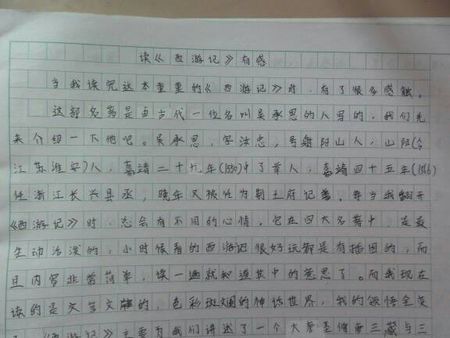 读《西游记》有感
当我读完这本重重的《西游记》时,有了很多感触。
这部名著是由古代一位名叫吴承恩的人写的,我们先
来介绍一下他吧。吴承恩,字汝忠,号射阳山人,山阳(今
江苏淮安)人,嘉靖二十九年(1550)中了举人,嘉靖四十五年(1566)
任浙江长兴县丞,晚年又被任为荆王府记善。每当我翻开
《西游记》时,总会有不同的心情,它在四大名著中,是最
生动活泼的,小时候看的西游记很好玩都是有插图的,而
且内容非常简单,读一遍就知道其中的意思了。而我现在
读的是文言文版的,色彩斑斓的神话世界,我的领悟全
《西游记》主要为我们讲述了一个大唐高僧唐三藏与三